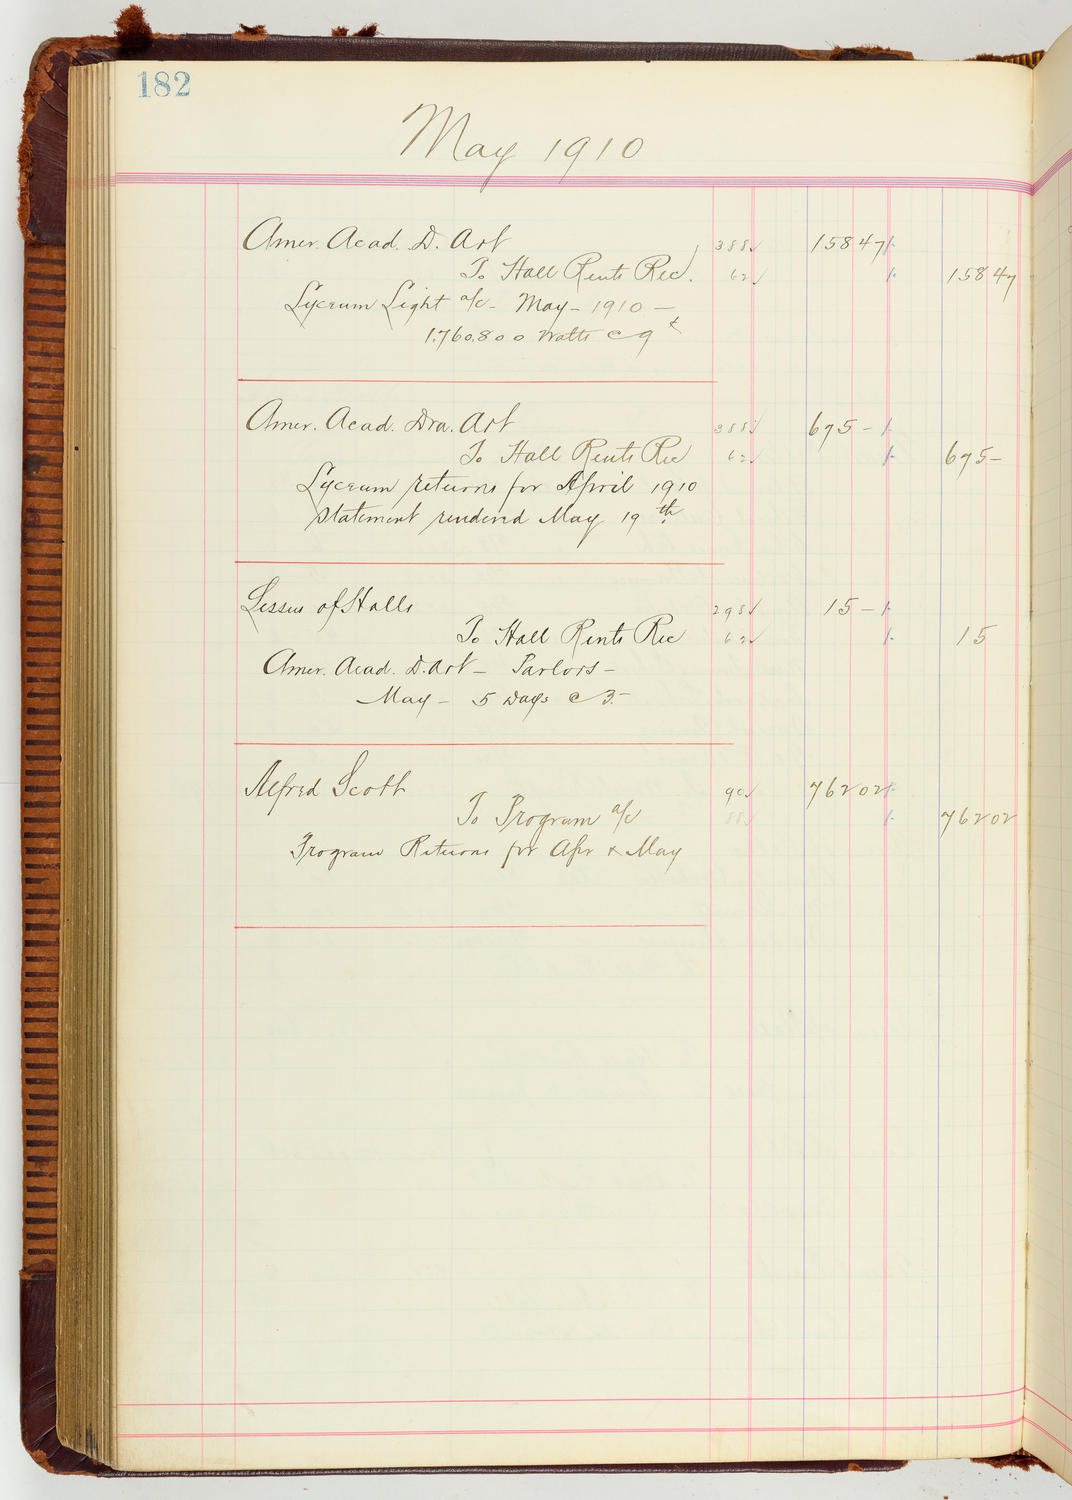 182
May 1910
Amer. Acad. D. Art 388✓ 158 47
To Hall Rents Rec'd. 62✓ 158 47
Lyceum Light a/c - May - 1910 —
1.760.800 Watts @ 9¢
Amer. Acad. Dra. Art 388✓ 675 -
To Hall Rents Rec 62✓ 675 -
Lyceum returns for April 1910
statement rendered May 19th
Lessees of Halls 298✓ 15 -
To Hall Rents Rec 62✓ 15
Amer. Acad. D. Art - Parlors -
May - 5 Days @ 3.-
Alfred Scott 90✓ 762 02
To Program a/c 88✓ 762 02
Program Returns for Apr & May